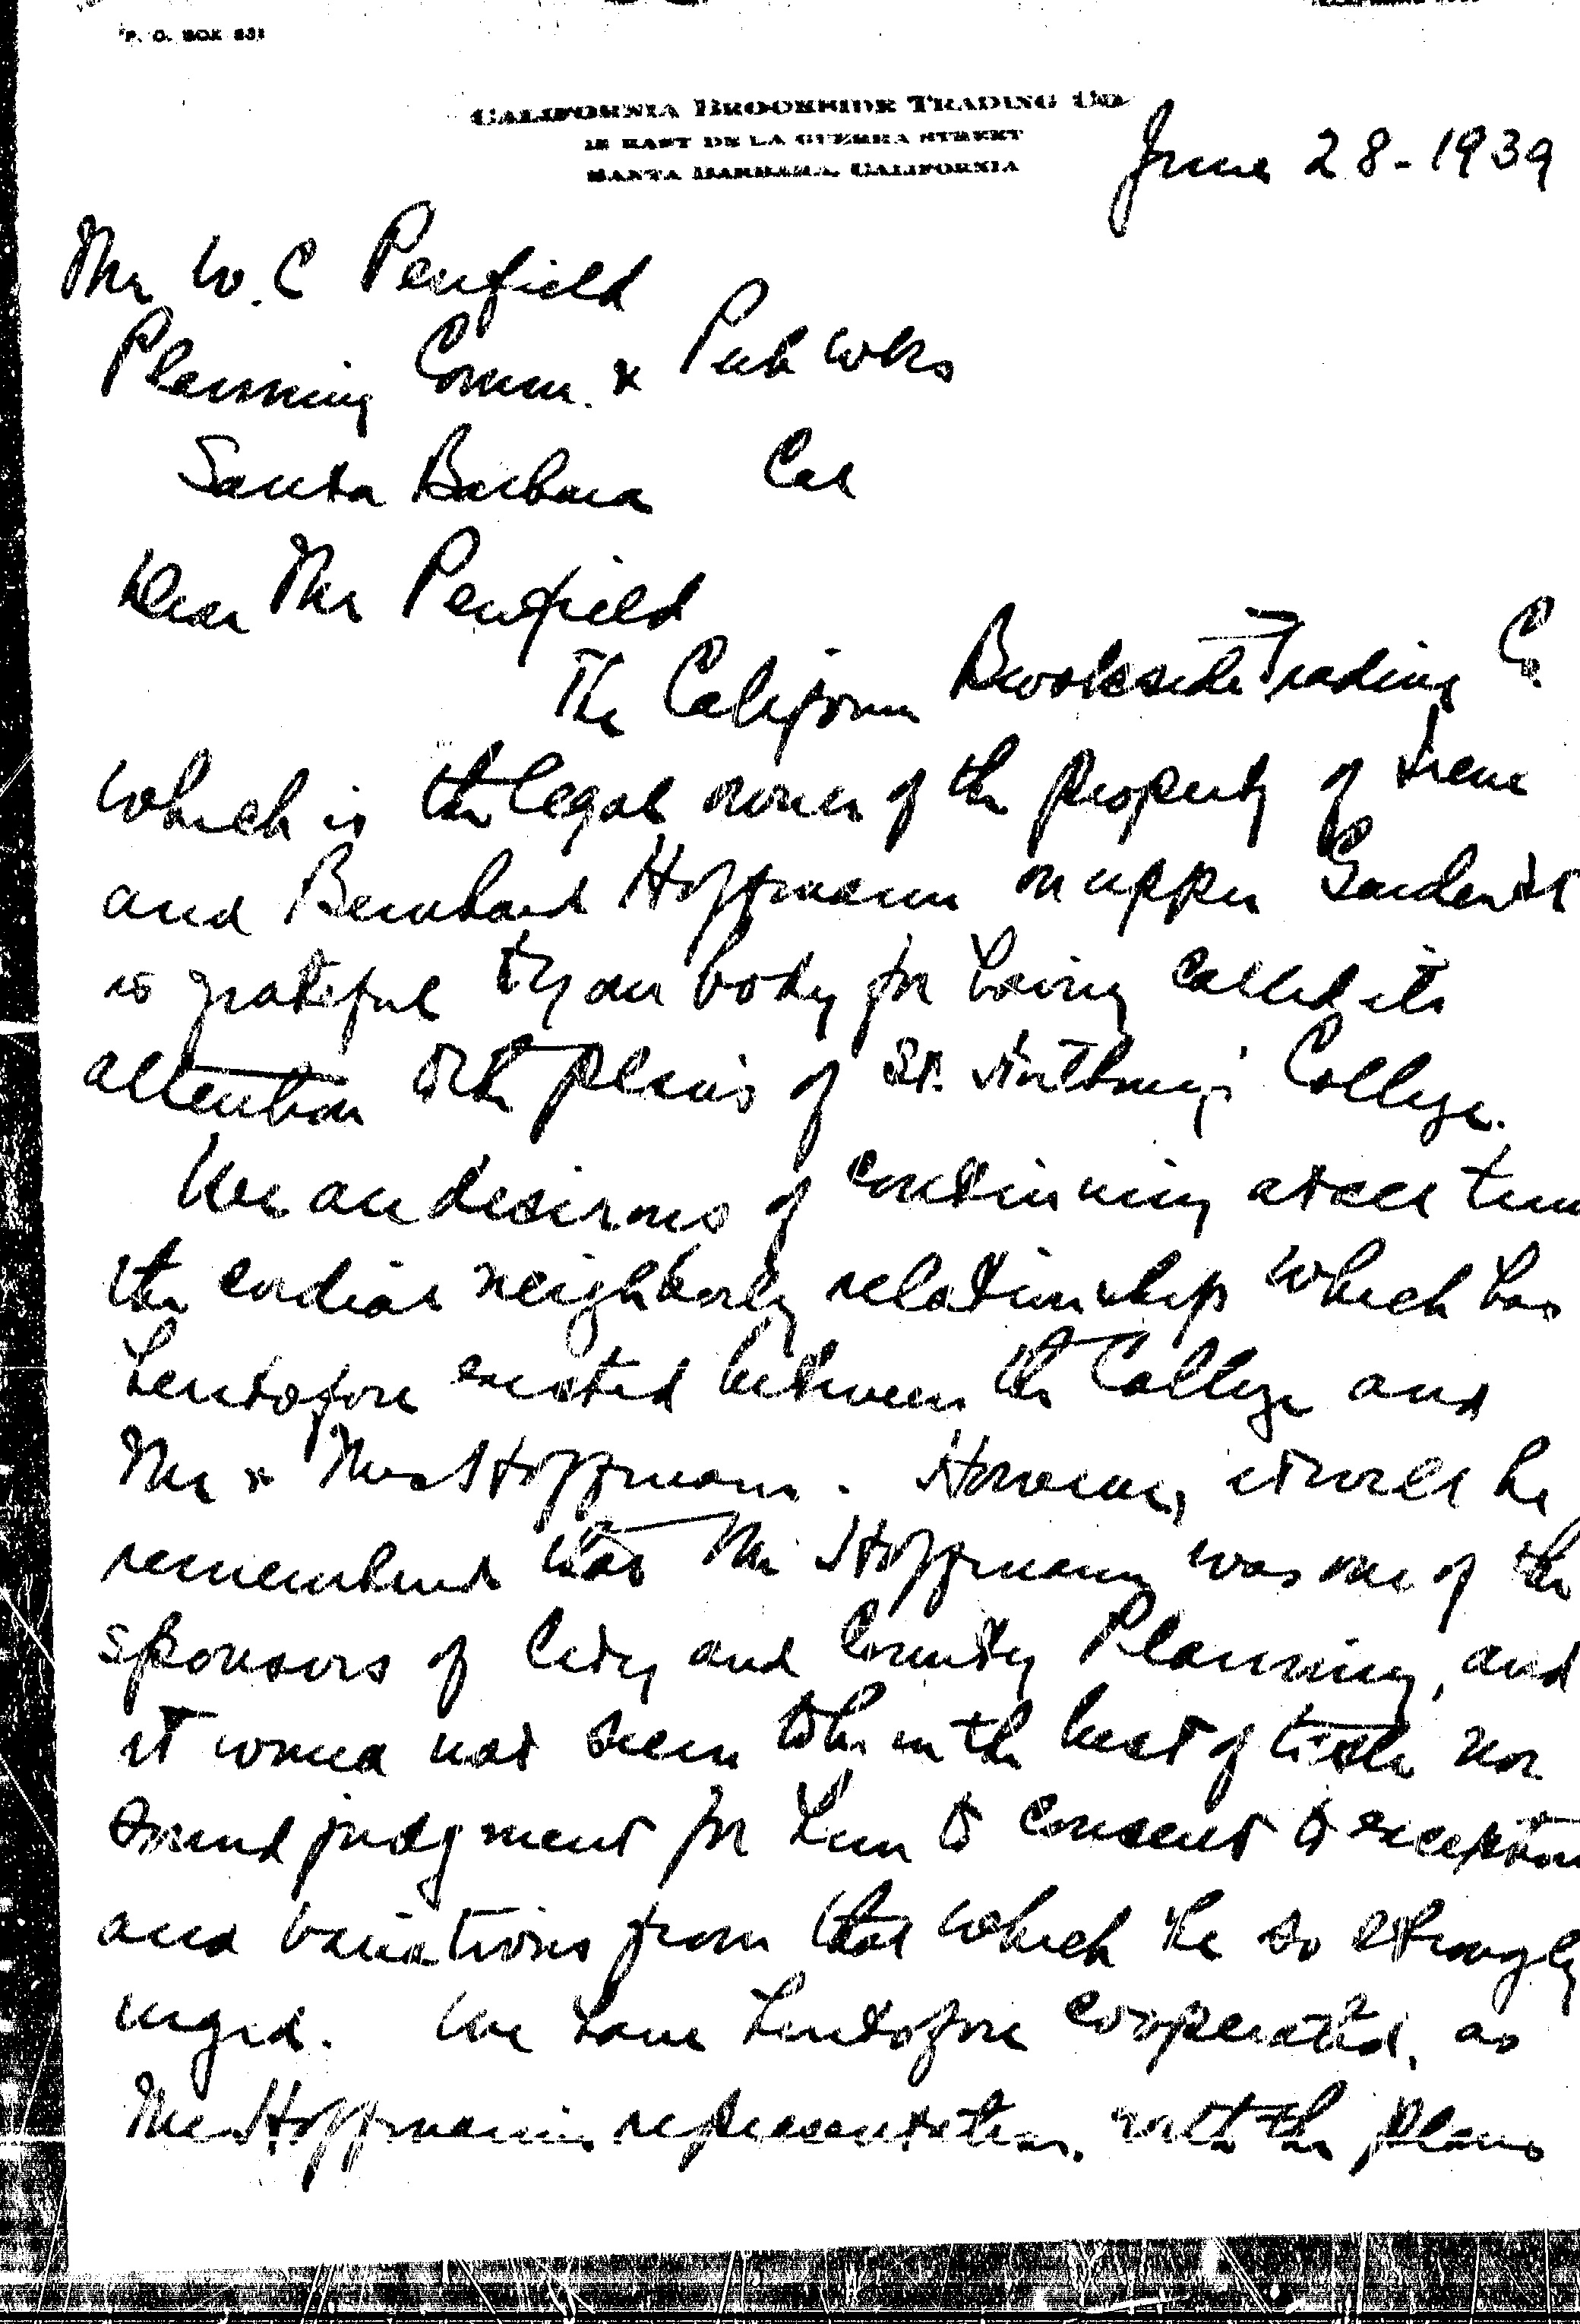 P. O. BOX 831
CALIFORNIA BROOKSIDE TRADING CO.
15 EAST DE LA GUERRA STREET
SANTA BARBARA, CALIFORNIA
June 28-1939
Mr W. C Penfield
Planning Comm. & Pub Wks
Santa Barbara Cal
Dear Mr Penfield
The California Brookside Trading Co.
which is the legal owner of the property of Irene
and Bernhard Hoffmann on upper Garden St
is grateful to your body for having called its
attention to the plans of St. Anthony's College.
We are desirous of continuing at all time
the cordial neighborly relationship which has
heretofore existed between the College and
Mr & Mrs Hoffmann. However, it will be
remembered that Mr Hoffmann was one of the
sponsors of City and County Planning, and
it would not seem to be in the best of taste nor
sound judgment for him to consent to exceptions
and variations from that which he so strongly
urged. We have heretofore cooperated, as
Mr Hoffmann's representative, with the plans